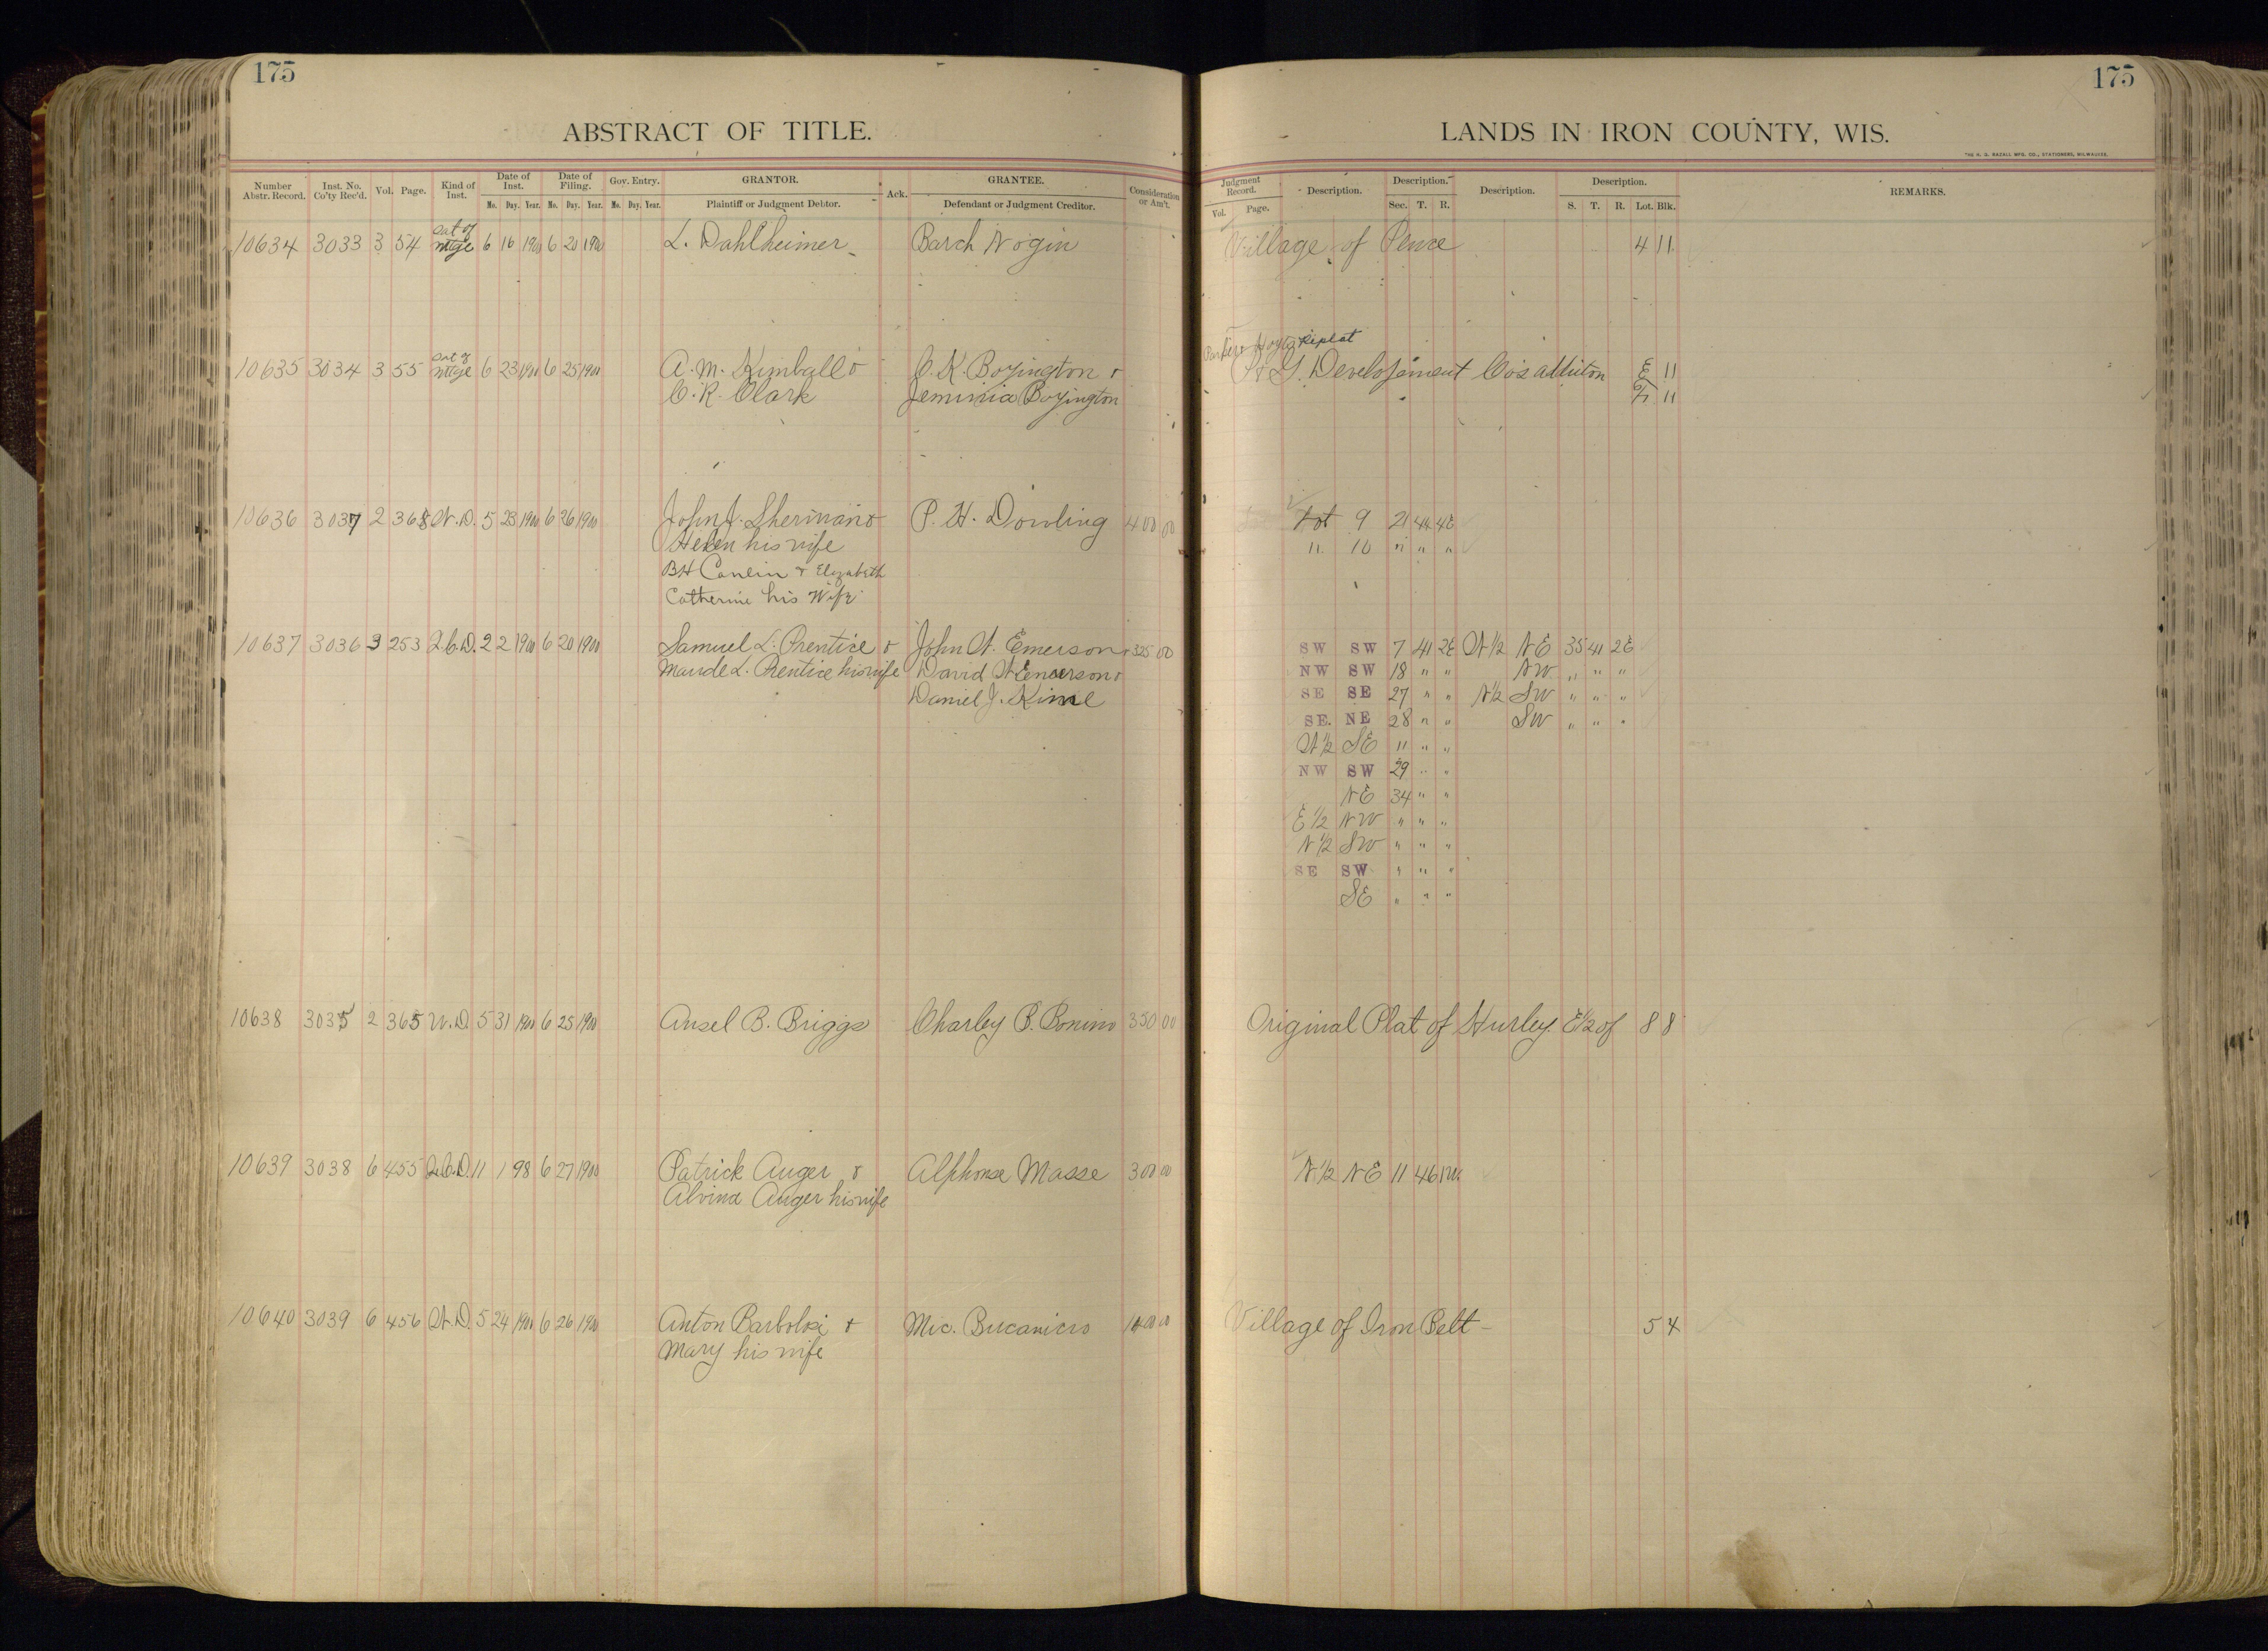 175
ABSTRACT OF TITLE.
Number Abstr. Record. Inst. No. Co'ty Rec'd. Vol. Page. Kind of Inst. Date of Inst. Date of Filing. Gov. Entry. GRANTOR. Ack. GRANTEE. Consideration or Am't.
Mo. Day. Year. Mo. Day. Year. Mo. Day. Year. Plaintiff or Judgment Debtor. Defendant or Judgment Creditor.
10634 3033 3 54 Sat of Mtge 6 16 1900 6 20 1900 L. Dahlheimer Barch Nogin
10635 3034 3 55 Sat of Mtge 6 23 1900 6 25 1900 A. M. Kimball & C. K. Boyington &
C. R. Clark Jemimia Boyington
10636 3037 2 368 W. D. 5 23 1900 6 26 1900 John J. Sherman & P. H. Dowling 400 00
Helen his wife
BH Conlin & Elizabeth
Catherine his Wife
10637 3036 3 253 Q.C.D. 2 2 1900 6 20 1900 Samuel L. Prentice & John W. Emerson 325 00
Maude L. Prentice his wife David W Emerson &
Daniel J. Kimel
10638 3035 2 365 W. D. 5 31 1900 6 25 1900 Ansel B. Briggs Charley P. Bonino 350 00
10639 3038 6 455 Q.C.D. 11 1 98 6 27 1900 Patrick Auger & Alphonse Masse 300 00
Alvina Auger his wife
10640 3039 6 456 W. D. 5 24 1900 6 26 1900 Anton Barbolsi & Mic. Bucanicro 00 00
Mary his wife
175
LANDS IN IRON COUNTY, WIS.
THE H. G. RAZALL MFG. CO., STATIONERS, MILWAUKEE.
Judgment Record. Description. Description. Description. Description. REMARKS.
Vol. Page. Sec. T. R. S. T. R. Lot. Blk.
Village of Pence 4 11
Replat
P & G. Developement Co's addition E 11
11
Lot 9 21 44 4E
" 10 " " "
SW SW 7 41 2E W 1/2 NE 35 41 2E
NW SW 18 " " NW " " "
SE SE 27 " " N 1/2 SW " " "
SE. NE 28 " " SW " " "
W 1/2 SE " " "
NW SW 29 " "
NE 34 " "
E 1/2 NW " " "
N 1/2 SW " " "
SE SW " " "
SE " " "
Original Plat of Hurley E 1/2 of 8 8
N 1/2 NE 11 46 1W
Village of Iron Belt - 5 4